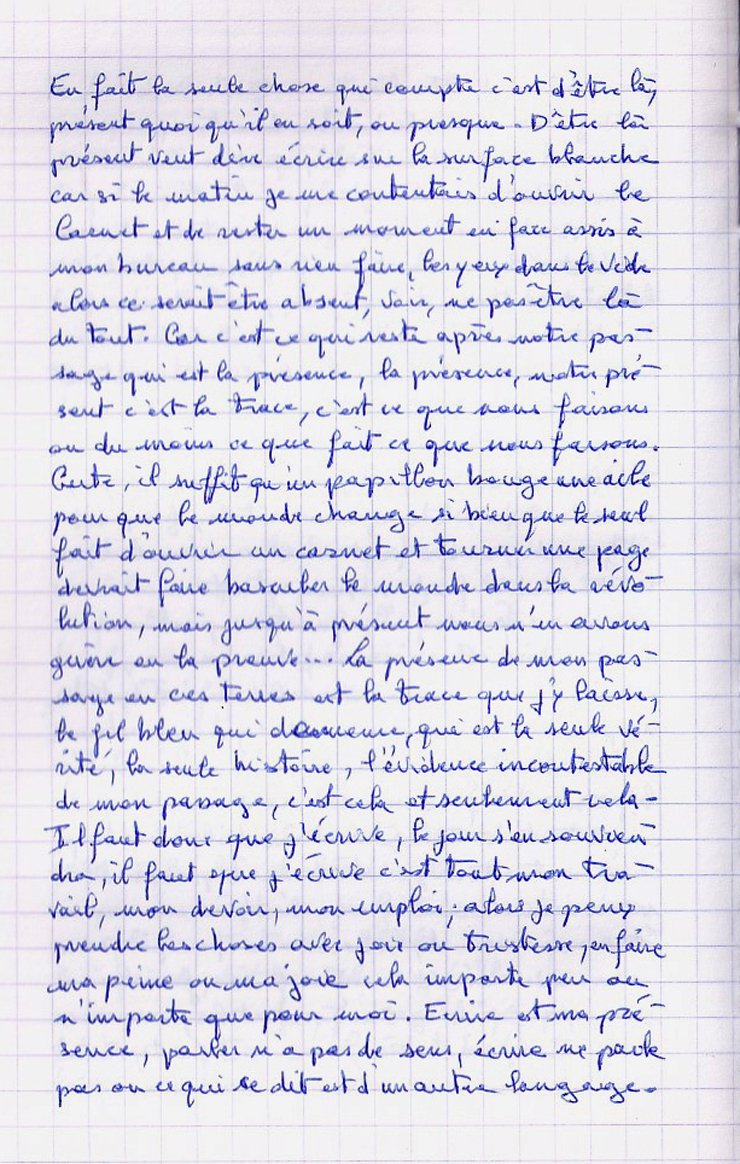 En fait la seule chose qui compte c'est d'être là,
présent quoi qu'il en soit, ou presque. D'être là
présent veut dire écrire sur la surface blanche
car si le matin je me contentais d'ouvrir le
Carnet et de rester un moment en face assis à
mon bureau sans rien faire, les yeux dans le vide
alors ce serait être absent, voir, ne pas être là
du tout. Car c'est ce qui reste après notre pas-
sage qui est la présence, la présence, notre pré-
sent c'est la trace, c'est ce que nous faisons
ou du moins ce que fait ce que nous faisons.
Certe, il suffit qu'un papillon bouge une aile
pour que le monde change si bien que le seul
fait d'ouvrir un carnet et tourner une page
devrait faire basculer le monde dans la révo-
lution, mais jusqu'à présent nous n'en avons
guère eu la preuve... La présence de mon pas-
sage en ces terres est la trace que j'y laisse,
le fil bleu qui demeure, qui est la seule vé-
rité, la seule histoire, l'évidence incontestable
de mon passage, c'est cela et seulement cela.
Il faut donc que j'écrive, le jour s'en souvien-
dra, il faut que j'écrive c'est tout mon tra-
vail, mon devoir, mon emploi, alors je peux
prendre les choses avec joie ou tristesse, en faire
ma peine ou ma joie cela importe peu ou
n'importe que pour moi. Ecrire est ma pré-
sence, parler n'a pas de sens, écrire ne parle
pas ou ce qui se dit est d'un autre langage.